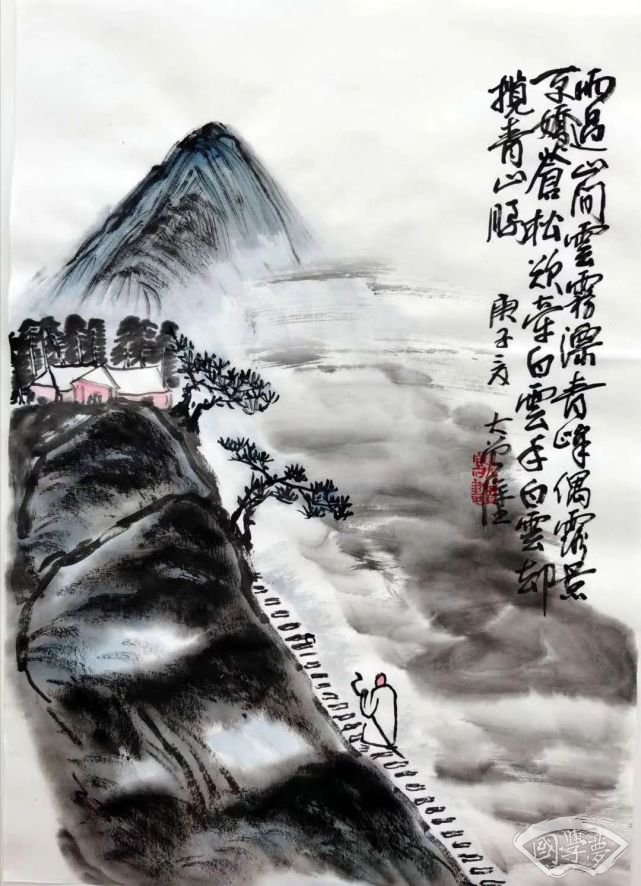 雨過山间雲霧漂青峰偶露景
嬌蒼松欲牵白雲手白雲却
攬青山腰
庚子夏
大
國學夢